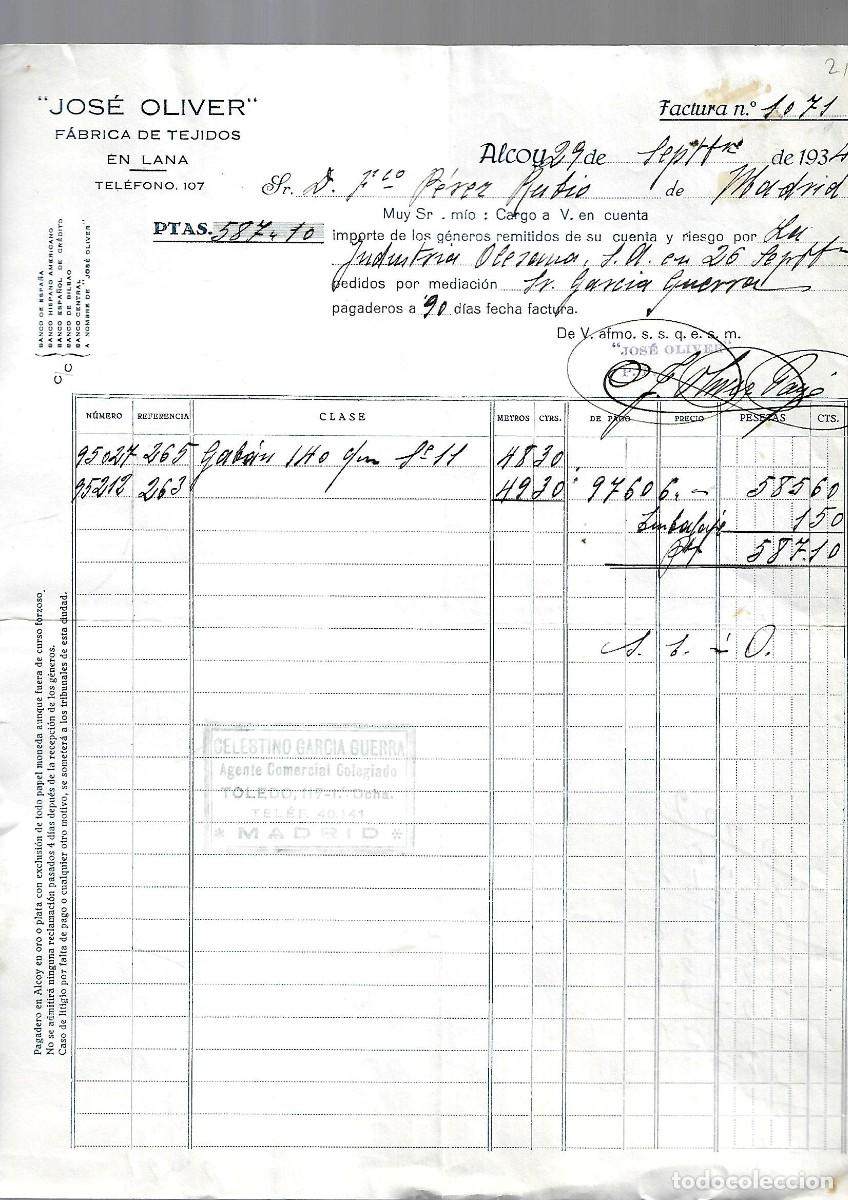 "JOSÉ OLIVER"
FÁBRICA DE TEJIDOS
EN LANA
TELÉFONO. 107
21
Factura n.º 1071
Alcoy 29 de Septbre de 1934
Sr. D. Fco Pérez Rubio de Madrid
Muy Sr. mío: Cargo a V. en cuenta
PTAS. 587,10
importe de los géneros remitidos de su cuenta y riesgo por La
Industria Olesana, S.A. en 26 Septbre
pedidos por mediación Sr. Garcia Guerra
pagaderos a 90 días fecha factura.
De V. afmo. s. s. q. e. s. m.
"JOSÉ OLIVER"
P.
C/C
BANCO DE ESPAÑA
BANCO HISPANO AMERICANO
BANCO ESPAÑOL DE CRÉDITO
BANCO DE BILBAO
BANCO CENTRAL
A NOMBRE DE "JOSÉ OLIVER"
NÚMERO REFERENCIA CLASE METROS CTRS. DE PAGO PRECIO PESETAS CTS.
95027 265 Gabán 140 c/m 4830
95212 263 4930 9760 6.- 58560
Embalaje 150
Pts 587.10
CELESTINO GARCIA GUERRA
Agente Comercial Colegiado
TOLEDO, 117-1.º Dcha.
TELÉF. 40.141
* MADRID *
Pagadero en Alcoy en oro o plata con exclusión de todo papel moneda aunque fuera de curso forzoso.
No se admitirá ninguna reclamación pasados 4 días depués de la recepción de los géneros.
Caso de litigio por falta de pago o cualquier otro motivo, se someterá a los tribunales de esta ciudad.
todocoleccion